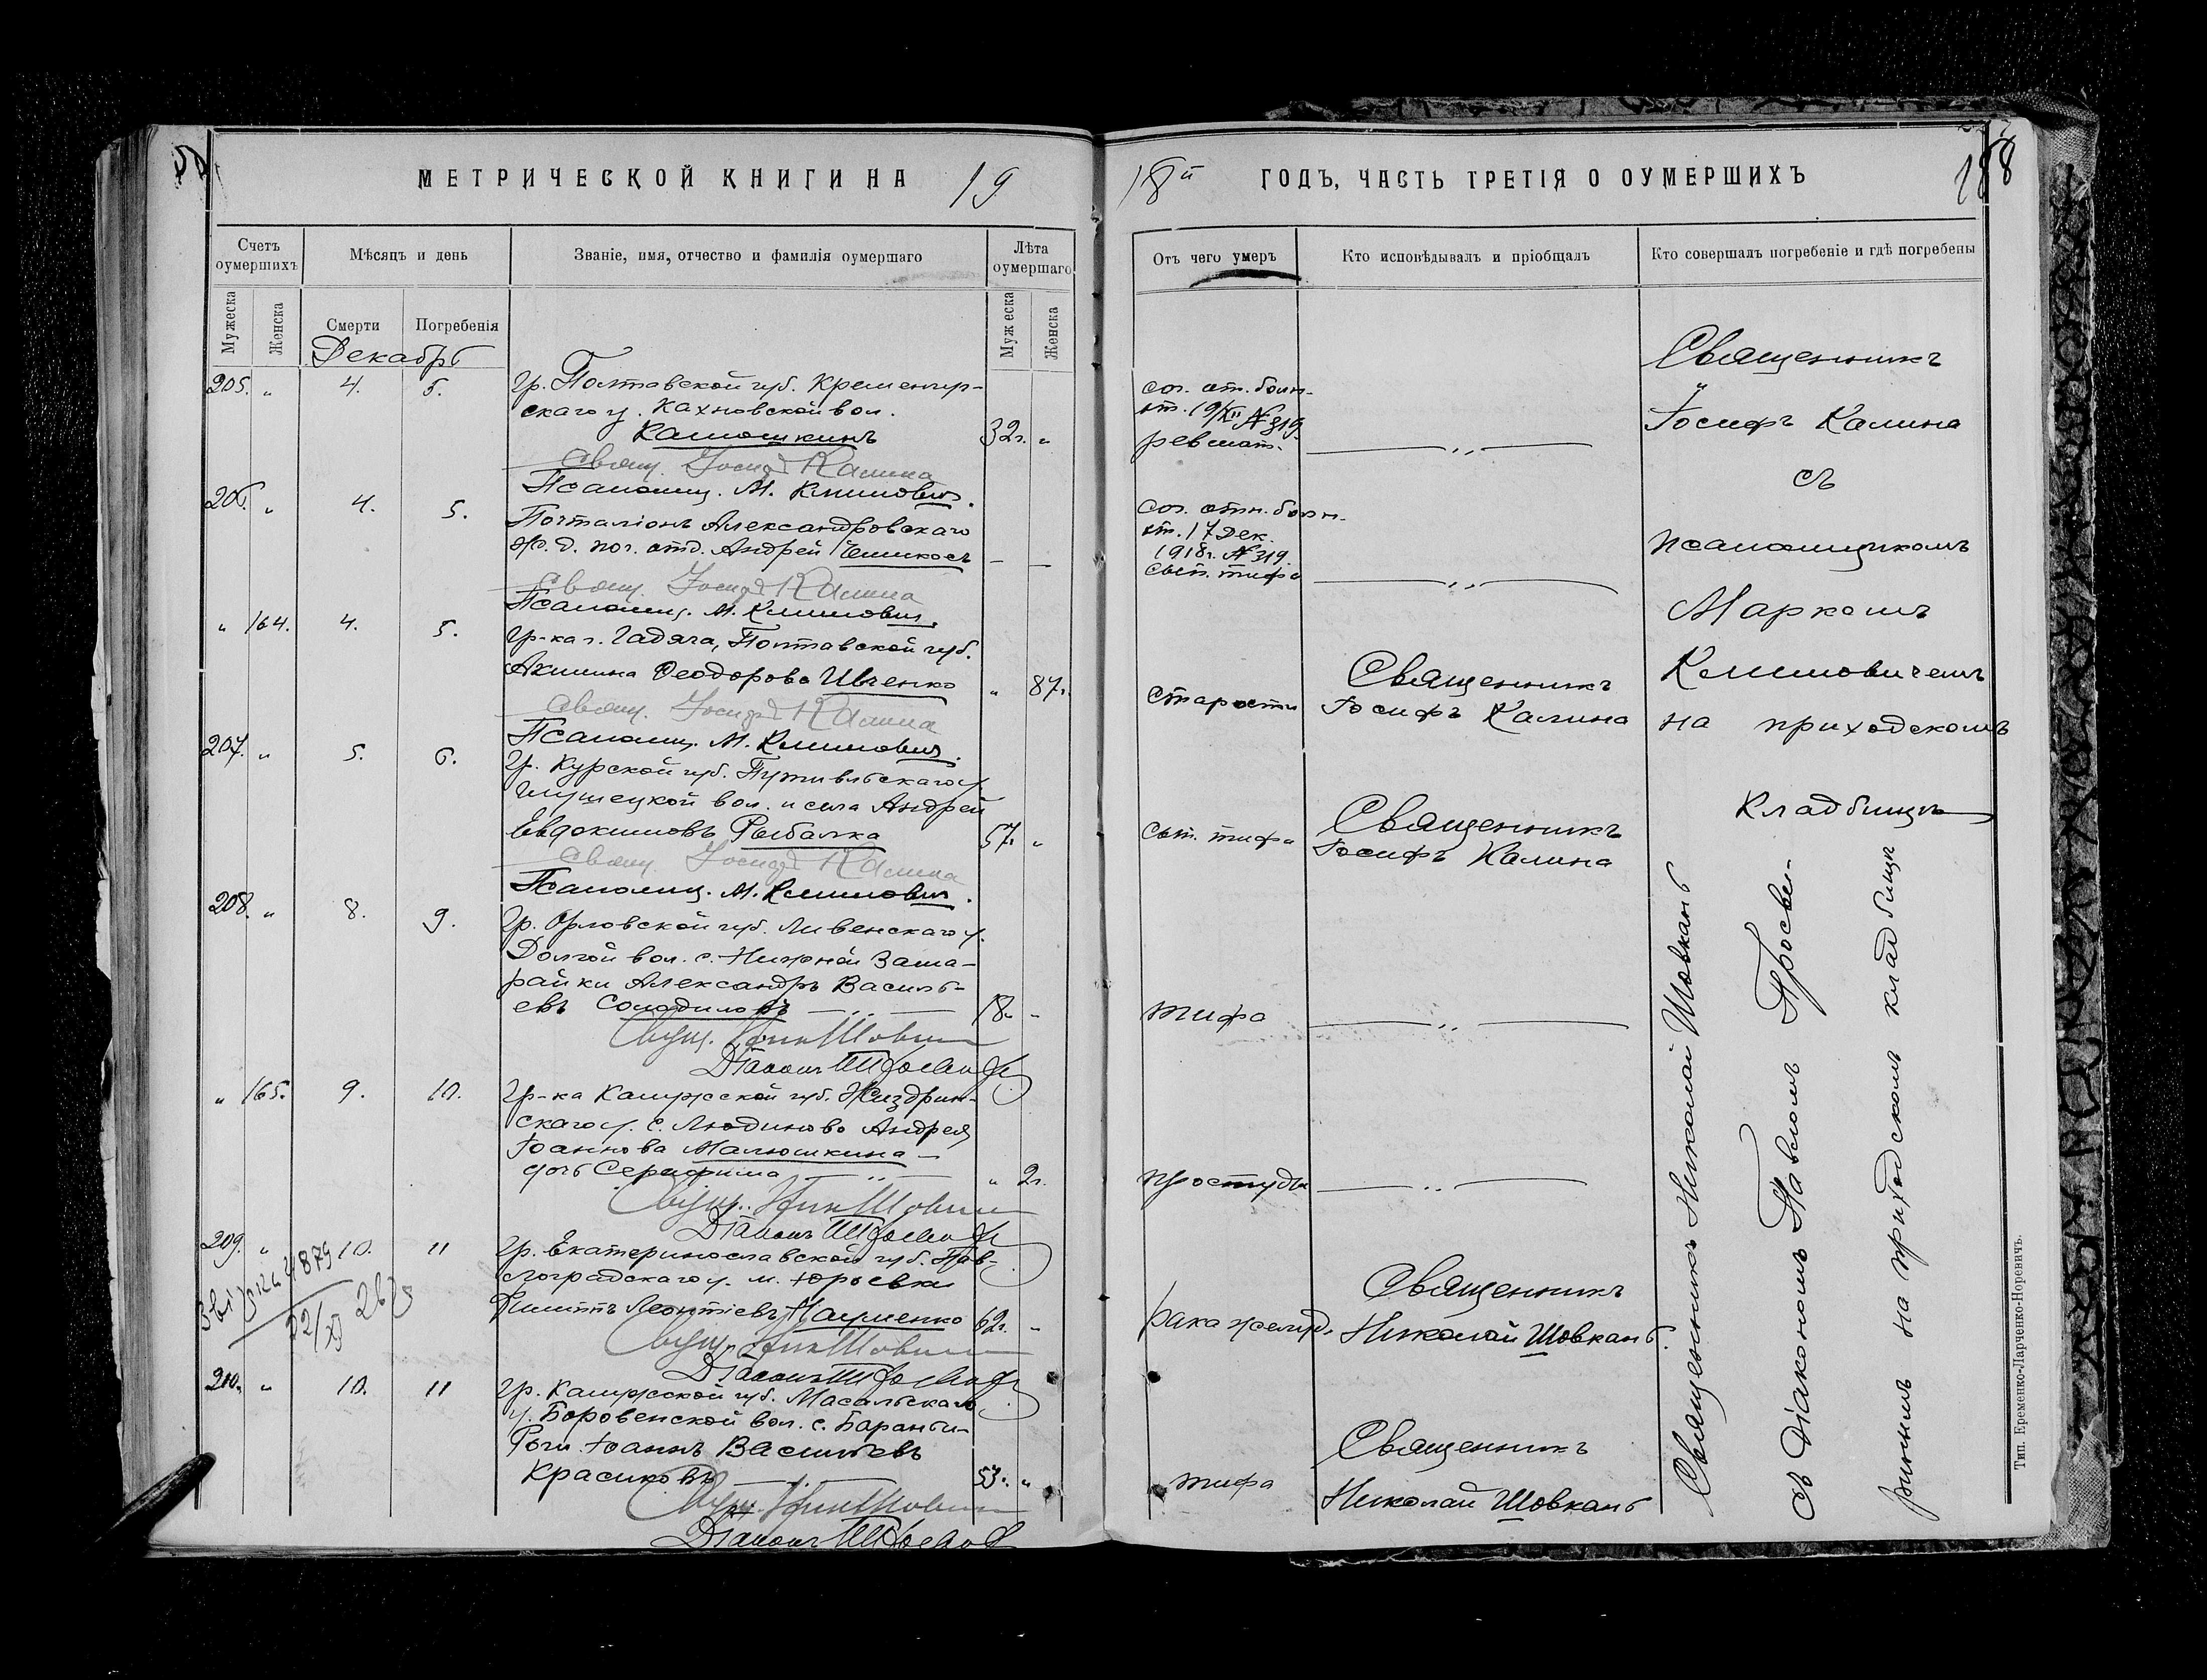 МЕТРИЧЕСКОЙ КНИГИ НА 19
18й ГОДЪ, ЧАСТЬ ТРЕТІЯ О ОУМЕРШИХЪ
188
Счетъ оумершихъ
Мѣсяцъ и день
Званіе, имя, отчество и фамилія оумершаго
Лѣта оумершаго
Мужеска
Женска
Смерти
Погребенія
Мужеска
Женска
Отъ чего умеръ
Кто исповѣдывалъ и пріобщалъ
Кто совершалъ погребеніе и гдѣ погребены
Декабрь
205. " 4. 5.
Гр. Полтавской губ. Кременчуг-
скаго у. Кахновской вол.
Камошкинъ 32г. "
Свящ. Іосифъ Калина
Псаломщ. М. Климович.
сог. отн. больн.
от. 19/XII № 319
ревмат.
206. " 4. 5.
Почталіонъ Александровскаго
ж. д. поч. отд. Андрей
Свящ. Іосифъ Калина
Псаломщ. М. Климович.
сог. отн. больн.
от. 17 Дек.
1918г. № 319.
сып. тифа
" 164. 4. 5.
Гр-ка г. Гадяча, Полтавской губ.
Акилина Феодорова Ивченко " 87г.
Свящ. Іосифъ Калина
Псаломщ. М. Климович.
старости
Священникъ
Іосифъ Калина
207. " 5. 6.
Гр. Курской губ. Путивльскаго у.
вол. и села Андрей
Евдокимовъ Рыбалка 57. "
Свящ. Іосифъ Калина
Псаломщ. М. Климович.
сып. тифа
Священникъ
Іосифъ Калина
208. " 8. 9.
Гр. Орловской губ. Ливенскаго у.
Долгой вол. с. Нижней Зама-
райки Александръ Василь-
евъ Солодиловъ 18. -
Свящ. Ник Шовкань
Діаконъ
тифа
" 165. 9. 10.
Гр-ка Калужской губ. Жиздрин-
скаго у. с. Людиново Андрея
Іоаннова Малюшкина -
дочь Серафима " 2г.
Свящ. Ник Шовкань
Діаконъ
простуды
209. " 10. 11
Гр. Екатеринославской губ. Пав-
лоградскаго у. м. Юрьевки
Филиппъ Леонтіевъ Науменко 62г. "
Свящ. Ник Шовкань
Діаконъ
рака желуд.
Священникъ
Николай Шовкань.
210. " 10. 11
Гр. Калужской губ. Масальскаго
у. Боровенской вол. с. Бараньи-
Роги Іоаннъ Васильевъ
Красиковъ 53. "
Свящ. Ник Шовкань
Діаконъ
тифа
Священникъ
Николай Шовкань
Священникъ
Іосифъ Калина
съ
псаломщикомъ
Маркомъ
Климовичемъ
на приходскомъ
кладбищѣ
Священникъ Николай Шовкань
съ Діакономъ Павломъ Просве-
рининъ на приходскомъ кладбищѣ
Тип. Еременко-Ларченко-Неревичъ.